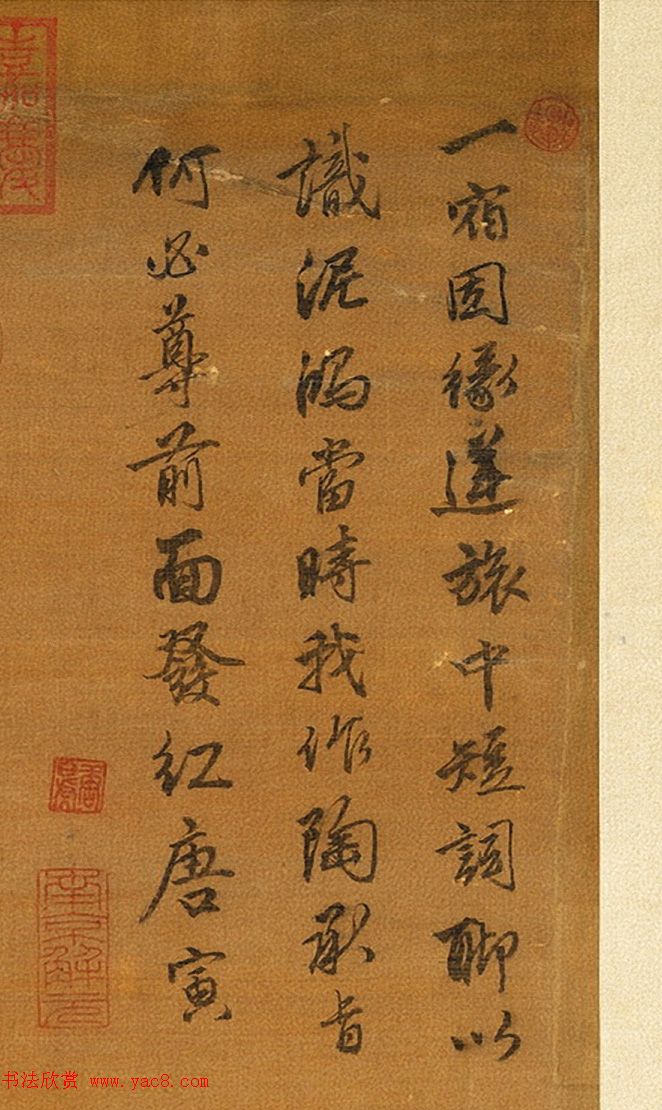 一宿因緣逆旅中短詞聊以
識泥鴻當時我作陶承旨
何必尊前面發紅唐寅
南京解元
书法欣赏 www.yac8.com